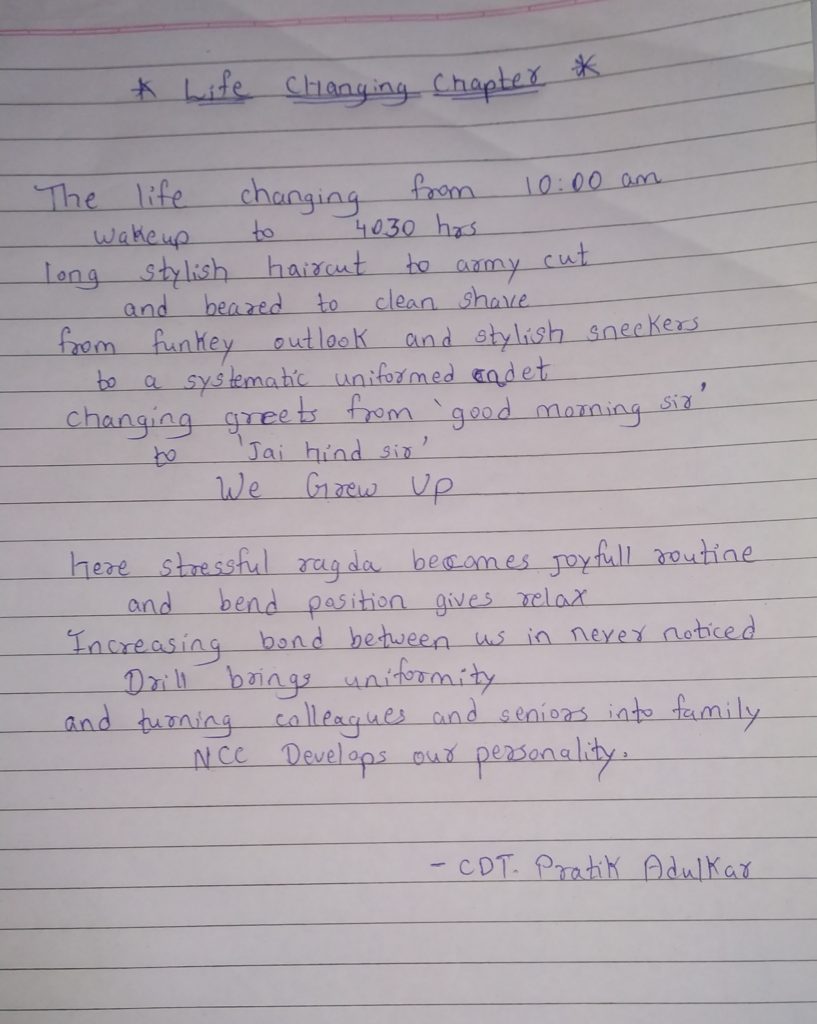 * Life Changing Chapter *
The life changing from 10:00 am
wakeup to 4030 hrs
long stylish haircut to army cut
and beared to clean shave
from funkey outlook and stylish sneekers
to a systematic uniformed cadet
changing greets from 'good morning sir'
to 'Jai hind sir'
We Grew Up
here stressful ragda becomes joyfull routine
and bend position gives relax
Increasing bond between us in never noticed
Drill brings uniformity
and turning colleagues and seniors into family
NCC Develops our personality.
- CDT. Pratik Adulkar